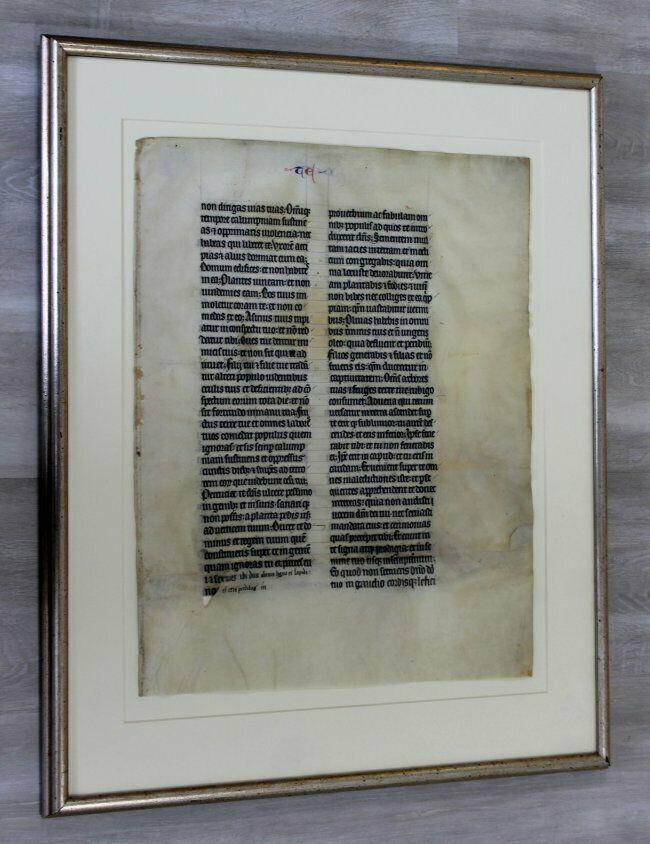 non dirigas uias tuas. Om̄iq;
tempore calumpniam sustine
as & opprimaris uiolencia. nec
habeas qui liberet te. Vxorē acci
pias & alius dormiat cum ea.
Domum edifices. et non habites
in ea. Plantes uineam. et non
uindemies eam. Bos tuus im
moletur coram te. et non co
medas ex eo. Asinus tuus rapi
atur in conspectu tuo. et nō red
datur tibi. Oues tue dentur ini
micis tuis. et non sit qui te ad
iuuet. Filij tui & filie tue tradā
tur alteri populo uidentibus
oculis tuis et deficientibꝫ ad cō
spectum eorum tota die. et nō
sit fortitudo in manu tua. Fru
ctus terre tue et omnes labores
tuos comedat populus quem
ignoras. et sis semp calump
niam sustinens et oppressus
cunctis diebꝫ & stupēs ad terro
rem eorꝫ que uidebunt oc̄li tui.
Percuciat te dn̄s ulcere pessimo
in genibꝫ et in suris. sanari qꝫ
non possis. a planta pedis usqꝫ
ad uerticem tuum. Ducet te do
minus et regem tuum quē
constitueris super te in gentē
quam ignoras tu et patres tui
& seruies ibi diis alienis ligno et lapidi.
prouerbium ac fabulam om
nibꝫ populis ad quos te intro
duxerit dn̄s. Sementem mul
tam iacies in terram et modi
cum congregabis. quia om
nia locuste deuorabunt. Vine
am plantabis & fodies. & uinū
non bibes nec colliges ex ea qp
piam. qm̄ uastabitur uermi
bus. Oliuas habebis in omni
bus t̄minis tuis et nō ungeris
oleo. quia defluent et peribūt.
Filios generabis & filias et nō
frueris eis. qm̄ ducentur in
captiuitatem. Om̄s arbores
tuas & fruges terre tue rubigo
consumet. Aduena qui tecum
uersatur in terra ascendet sup
te erit qꝫ sublimior. tu autē des
cendes. et eris inferior. Ipse fene
rabit tibi. et tu non feneraberis
ei. Ip̄e erit in caput. et tu eris in
caudam. Et uenient super te om
nes maledictiones iste. et pse
quentes apprehendent te donec
intereas. quia non audisti u
ocem dn̄i dei tui. nec seruasti
mandata eius et cerimonias
quas precepit tibi. Et erunt in
te signa atqꝫ prodigia. et in se
mine tuo usqꝫ in sempiternum.
Eo quod non seruieris dn̄o dō
tuo in gaudio cordisqꝫ letici